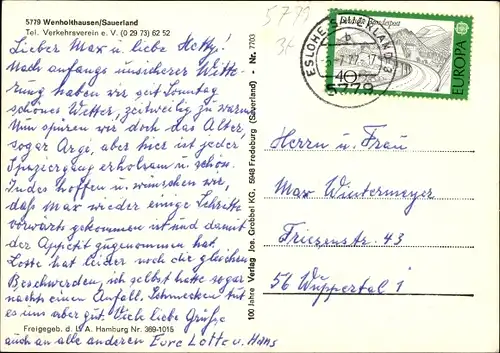 5779 Wenholthausen/Sauerland
Tel. Verkehrsverein e. V. (0 29 73) 62 52
Lieber Max u. liebe Hetty!
Nach anfangs unsicherer Witte-
rung haben wir seit Sonntag
schönes Wetter, zeitweilig zu warm.
Nun spüren wir doch das Alter,
sogar Arge, aber hier ist jeder
Spaziergang erholsam u. schön.
Indes hoffen u. wünschen wir,
daß Max wieder einige Schritte
vorwärts gekommen ist und damit
der Appetit zugenommen hat.
Lotte hat leider noch die gleichen
Beschwerden, ich selbst hatte sogar
nachts einen Anfall. Schmecken tut
es uns aber gut. Viele liebe Grüße
Freigegeb. d. L. A. Hamburg Nr. 369-1015
auch an alle anderen Eure Lotte u. Hans
100 Jahre Verlag Jos. Grobbel KG, 5948 Fredeburg (Sauerland) - Nr. 7703
5779
ESLOHE SAUERLAND
77-17
5779
Deutsche Bundespost
40
EUROPA
Herrn u. Frau
Max Wintermeyer
Friesenstr. 43
56 Wuppertal 1